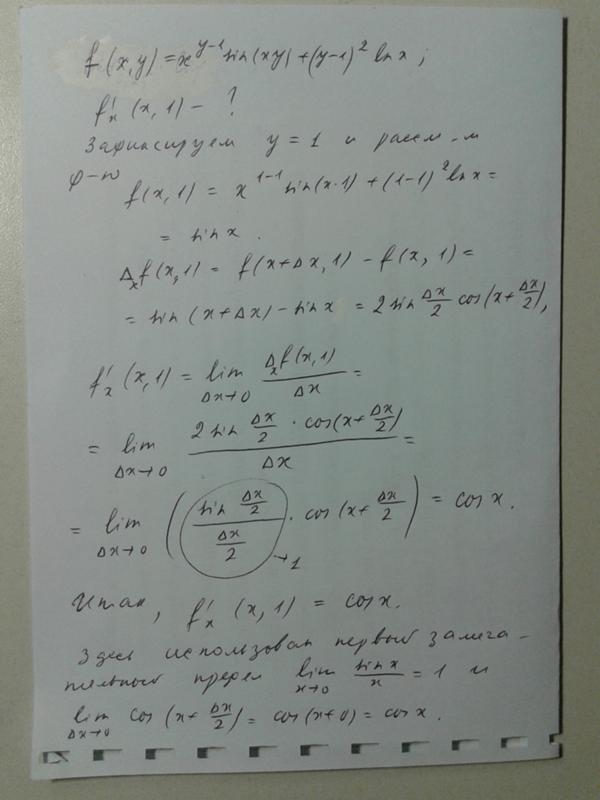 f(x,y) = x^{y-1} sin(xy) + (y-1)^2 ln x;
f'_x (x,1) - ?
Зафиксируем y = 1 и рассм-м
ф-ю
f(x,1) = x^{1-1} sin(x·1) + (1-1)^2 ln x =
= sin x.
Δ_x f(x,1) = f(x+Δx,1) - f(x,1) =
= sin(x+Δx) - sin x = 2 sin \frac{Δx}{2} cos(x+\frac{Δx}{2}),
f'_x (x,1) = lim_{Δx→0} \frac{Δ_x f(x,1)}{Δx} =
= lim_{Δx→0} \frac{2 sin \frac{Δx}{2} · cos(x+\frac{Δx}{2})}{Δx} =
= lim_{Δx→0} (\frac{sin \frac{Δx}{2}}{\frac{Δx}{2}} · cos(x+\frac{Δx}{2})) = cos x.
→1
Итак, f'_x (x,1) = cos x.
Здесь использован первый замеча-
тельный предел lim_{x→0} \frac{sin x}{x} = 1 и
lim_{Δx→0} cos(x+\frac{Δx}{2}) = cos(x+0) = cos x.